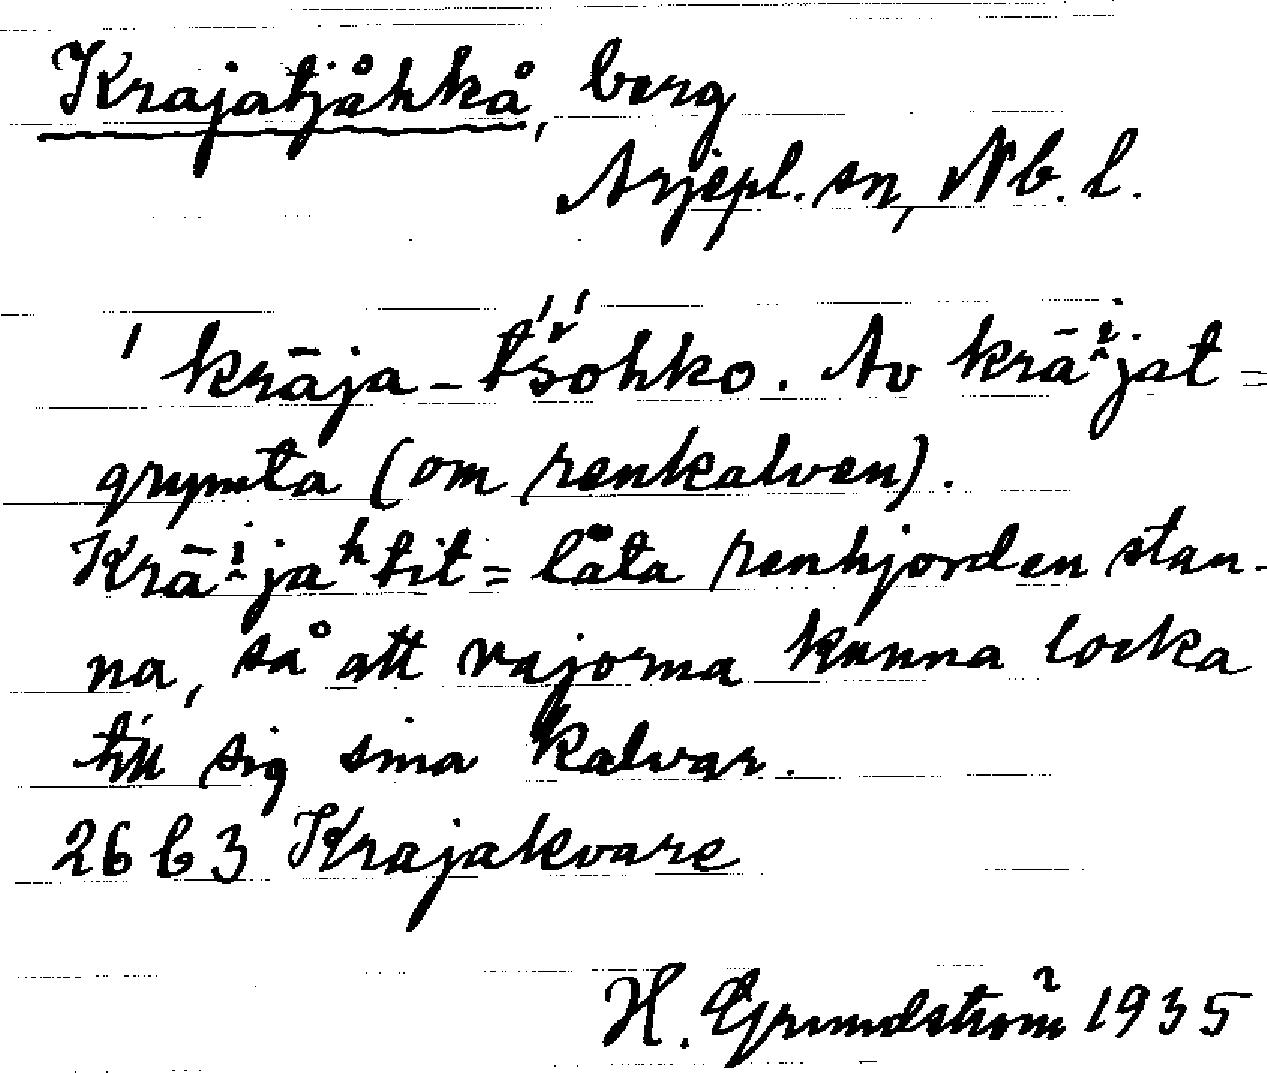 Krajatjåhkå, berg
Arjepl. sn, Nb. l.
ˈkrāja-tšˈohko. Av krāi̭jat =
grymta (om renkalven).
Krāi̭jaʰtit = låta renhjorden stan-
na, så att vajorna kunna locka
till sig sina kalvar.
26 b 3 Krajakvare
H. Grundström 1935